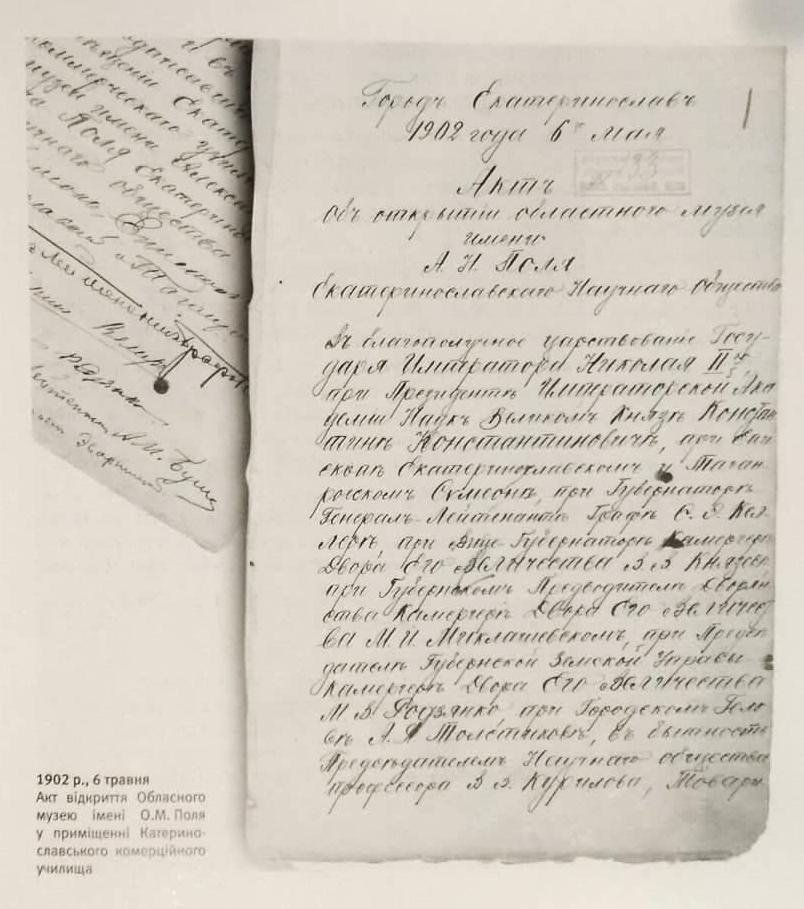 Городъ Екатеринославъ
1902 года 6го мая
Актъ
объ открытіи областного музея
имени
А. Н. Поля
Екатеринославскаго Научнаго Общества
Въ благополучное царствованіе Госу-
даря Императора Николая II го,
при Президентѣ Императорской Ака
деміи Наукъ Великомъ Князѣ Констан
тинѣ Константиновичѣ, при Епи
скопѣ Екатеринославскомъ и Таган
рогскомъ Симеонѣ, при Губернаторѣ
Генералъ-Лейтенантѣ Графѣ Ѳ. Э. Кел
лерѣ, при Вице-Губернаторѣ Камергерѣ
Двора Его Величества В. В. Князевѣ
при Губернскомъ Предводителѣ Дворян
ства Камергерѣ Двора Его Величест
ва М. И. Миклашевскомъ, при Предсѣ
дателѣ Губернской Земской Управы
Камергерѣ Двора Его Величества
М. В. Родзянко при Городскомъ Голо
вѣ А. Я. Толстиковѣ, въ бытность
Предсѣдателемъ Научнаго общества
профессора В. В. Курилова, Товари
и въ
подписавш
коммерческаго учил
музей имени Алекса
Поля Екатерино
учнаго общества
Симеонъ Епископ
и Таганрог
А. М. Бушъ
1902 р., 6 травня
Акт відкриття Обласного
музею імені О.М. Поля
у приміщенні Катерино-
славського комерційного
училища